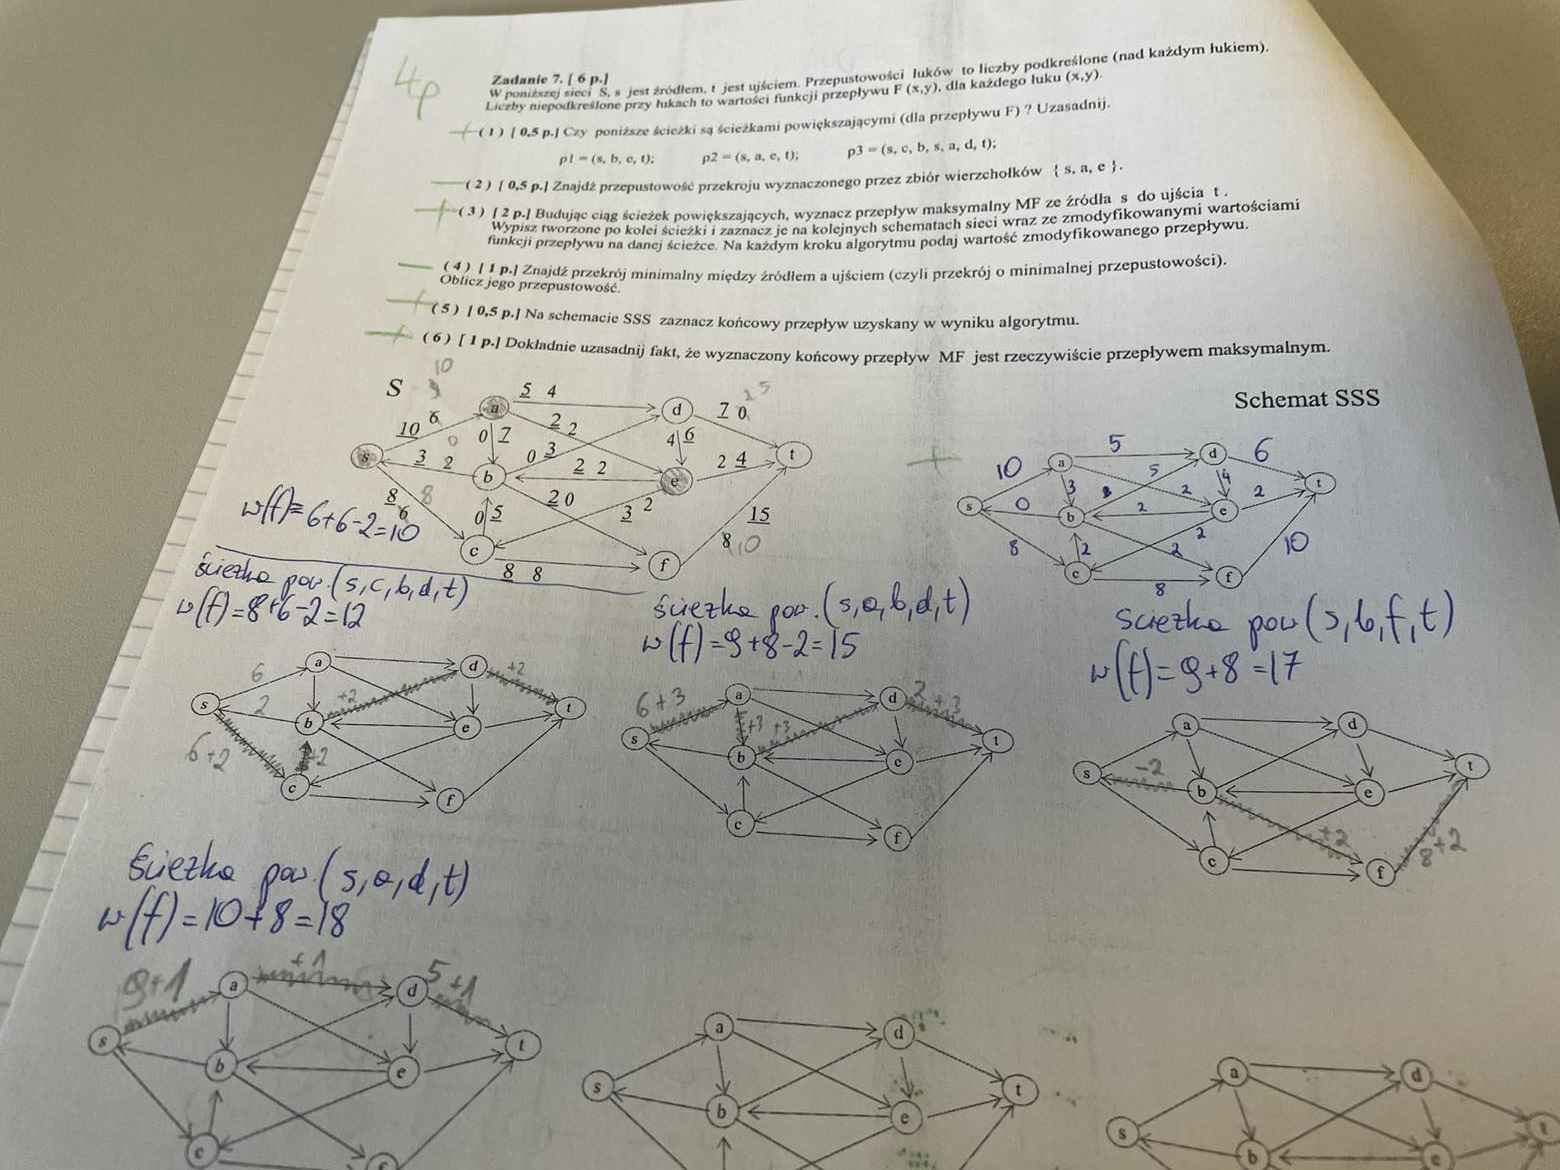 4p
Zadanie 7. [ 6 p.]
W poniższej sieci S, s jest źródłem, t jest ujściem. Przepustowości łuków to liczby podkreślone (nad każdym łukiem).
Liczby niepodkreślone przy łukach to wartości funkcji przepływu F (x,y), dla każdego łuku (x,y).
+ ( 1 ) [ 0,5 p.] Czy poniższe ścieżki są ścieżkami powiększającymi (dla przepływu F) ? Uzasadnij.
p1 = (s, b, e, t); p2 = (s, a, e, t); p3 = (s, c, b, s, a, d, t);
— ( 2 ) [ 0,5 p.] Znajdź przepustowość przekroju wyznaczonego przez zbiór wierzchołków { s, a, e }.
+ ( 3 ) [ 2 p.] Budując ciąg ścieżek powiększających, wyznacz przepływ maksymalny MF ze źródła s do ujścia t .
Wypisz tworzone po kolei ścieżki i zaznacz je na kolejnych schematach sieci wraz ze zmodyfikowanymi wartościami
funkcji przepływu na danej ścieżce. Na każdym kroku algorytmu podaj wartość zmodyfikowanego przepływu.
— ( 4 ) [ 1 p.] Znajdź przekrój minimalny między źródłem a ujściem (czyli przekrój o minimalnej przepustowości).
Oblicz jego przepustowość.
+ ( 5 ) [ 0,5 p.] Na schemacie SSS zaznacz końcowy przepływ uzyskany w wyniku algorytmu.
+ ( 6 ) [ 1 p.] Dokładnie uzasadnij fakt, że wyznaczony końcowy przepływ MF jest rzeczywiście przepływem maksymalnym.
10
S 9 5 4 2 5
Schemat SSS
a d 7 0
10 6 2 2
0 0 7 0 3 4 6
s 3 2 b 2 2 e 2 4 t
8 8 6 2 0 3 2 15
0 5 8 10
c 8 8 f
+
10 5 6
a d
3 5 2 4 2
s 0 b 2 e t
8 2 2 2 10
c 8 f
w(f)=6+6-2=10
ścieżka pow. (s,c,b,d,t)
w(f)=8+6-2=12
ścieżka pow. (s,a,b,d,t)
w(f)=9+8-2=15
ścieżka pow (s,b,f,t)
w(f)=9+8=17
6 a d +2
s 2 b +2 e t
6+2 +2
c f
6+3 a d 2+3
s b +3 +3 e t
c f
a d
s -2 b e t
+2 8+2
c f
ścieżka pow. (s,a,d,t)
w(f)=10+8=18
9+1 a +1 d 5+1
s b e t
c f
a d
s b e t
a d
s b e t